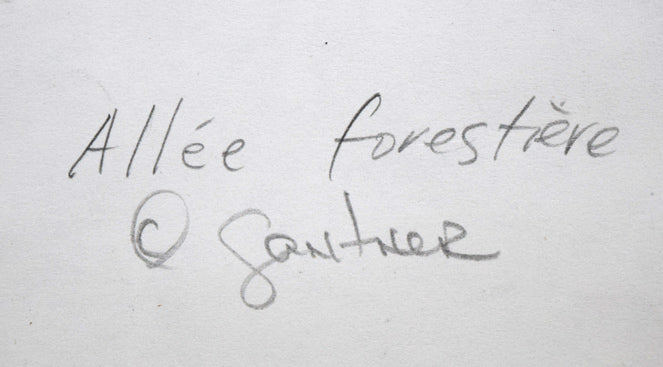 Allée forestière
© Gantner